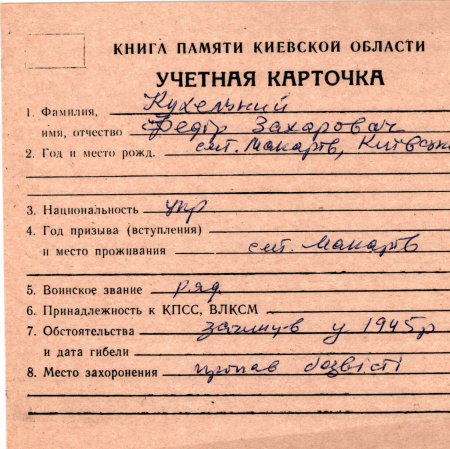 КНИГА ПАМЯТИ КИЕВСКОЙ ОБЛАСТИ
УЧЕТНАЯ КАРТОЧКА
1. Фамилия, Кухельний
имя, отчество Федір Захарович
2. Год и место рожд. смт. Макарів, Київська
3. Национальность укр
4. Год призыва (вступления)
и место проживания смт. Макарів
5. Воинское звание ряд
6. Принадлежность к КПСС, ВЛКСМ
7. Обстоятельства загинув у 1945р
и дата гибели
8. Место захоронения пропав безвісті